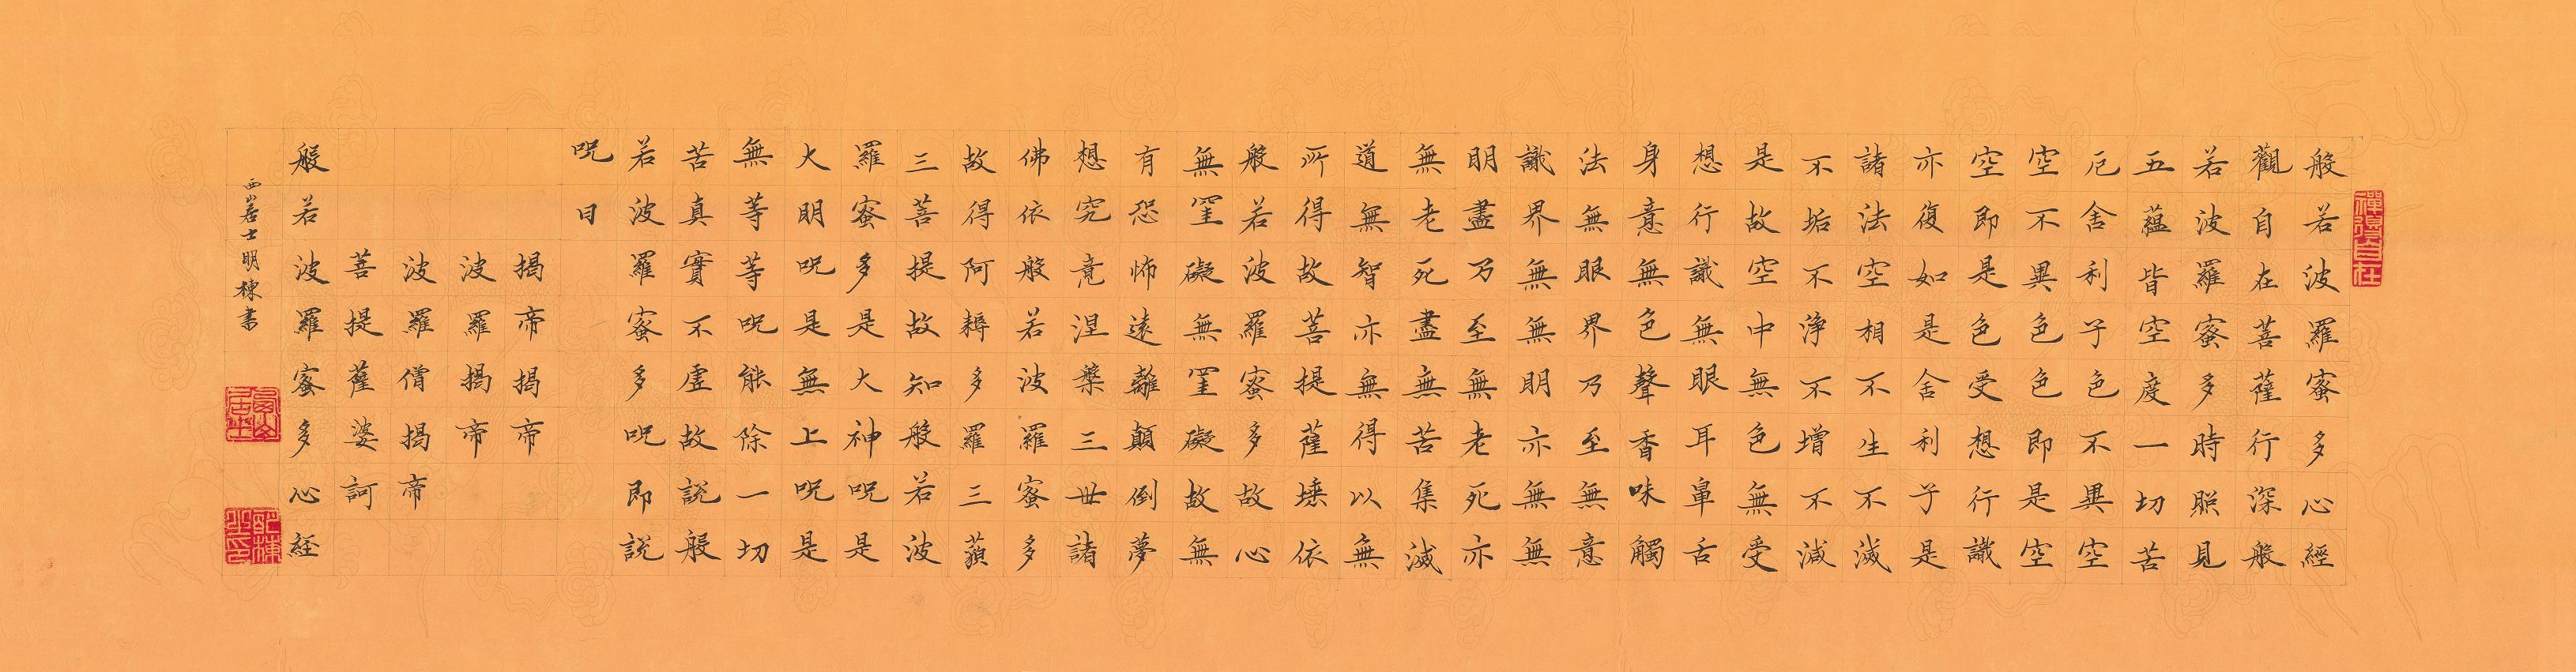 禪得自在
般若波羅蜜多心經
觀自在菩薩行深般
若波羅蜜多時照見
五蘊皆空度一切苦
厄舍利子色不異空
空不異色色即是空
空即是色受想行識
亦復如是舍利子是
諸法空相不生不滅
不垢不淨不增不減
是故空中無色無受
想行識無眼耳鼻舌
身意無色聲香味觸
法無眼界乃至無意
識界無無明亦無無
明盡乃至無老死亦
無老死盡無苦集滅
道無智亦無得以無
所得故菩提薩埵依
般若波羅蜜多故心
無罣礙無罣礙故無
有恐怖遠離顛倒夢
想究竟涅槃三世諸
佛依般若波羅蜜多
故得阿耨多羅三藐
三菩提故知般若波
羅蜜多是大神呪是
大明呪是無上呪是
無等等呪能除一切
苦真實不虛故說般
若波羅蜜多呪即說
呪曰
揭帝揭帝
波羅揭帝
波羅僧揭帝
菩提薩婆訶
般若波羅蜜多心経
西山居士明棟書